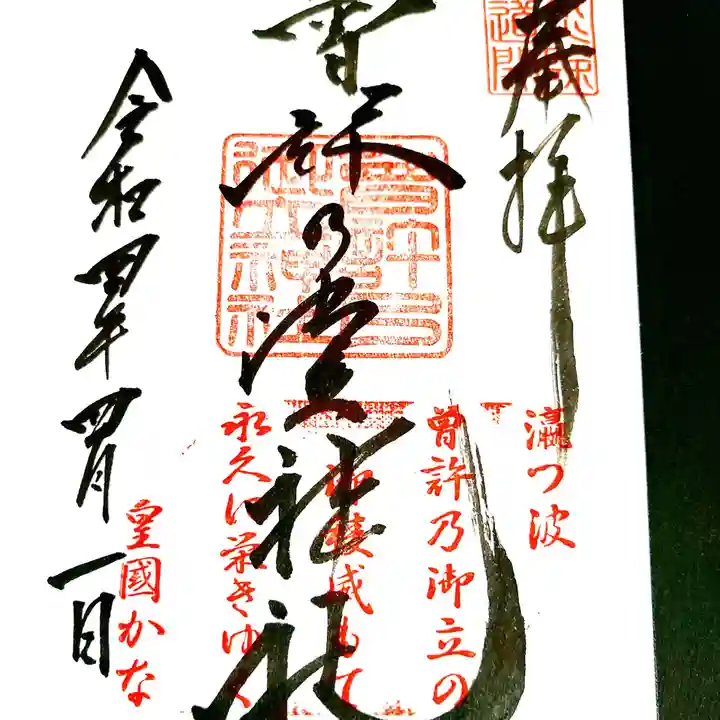 奉拝
瀛つ波
曽許乃御立の
御稜威もて
永久に栄きゆく
皇國かな
曽許乃御立神社
令和四年四月一日